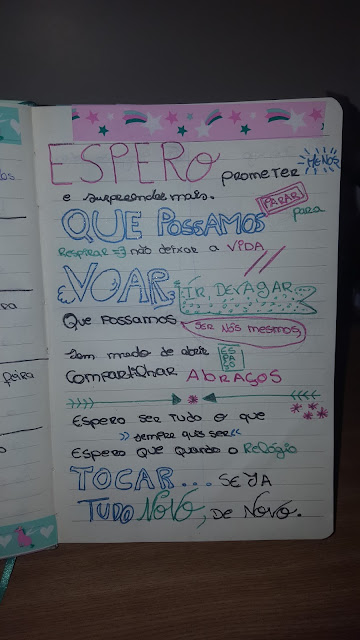 feira
ESPERO prometer MENOS
e surpreender mais. PARAR
QUE POSSAMOS para
Respirar => não deixar a VIDA
VOAR. IR DEVAGAR
Que possamos SER NÓS MESMOS
sem medo de abrir
COMPARTILHAR ABRAÇOS
ESPERO SER TUDO O QUE
>> sempre quis ser <<
ESPERO QUE QUANDO O Relógio
TOCAR... SEJA
TUDO NOVO, DE NOVO.